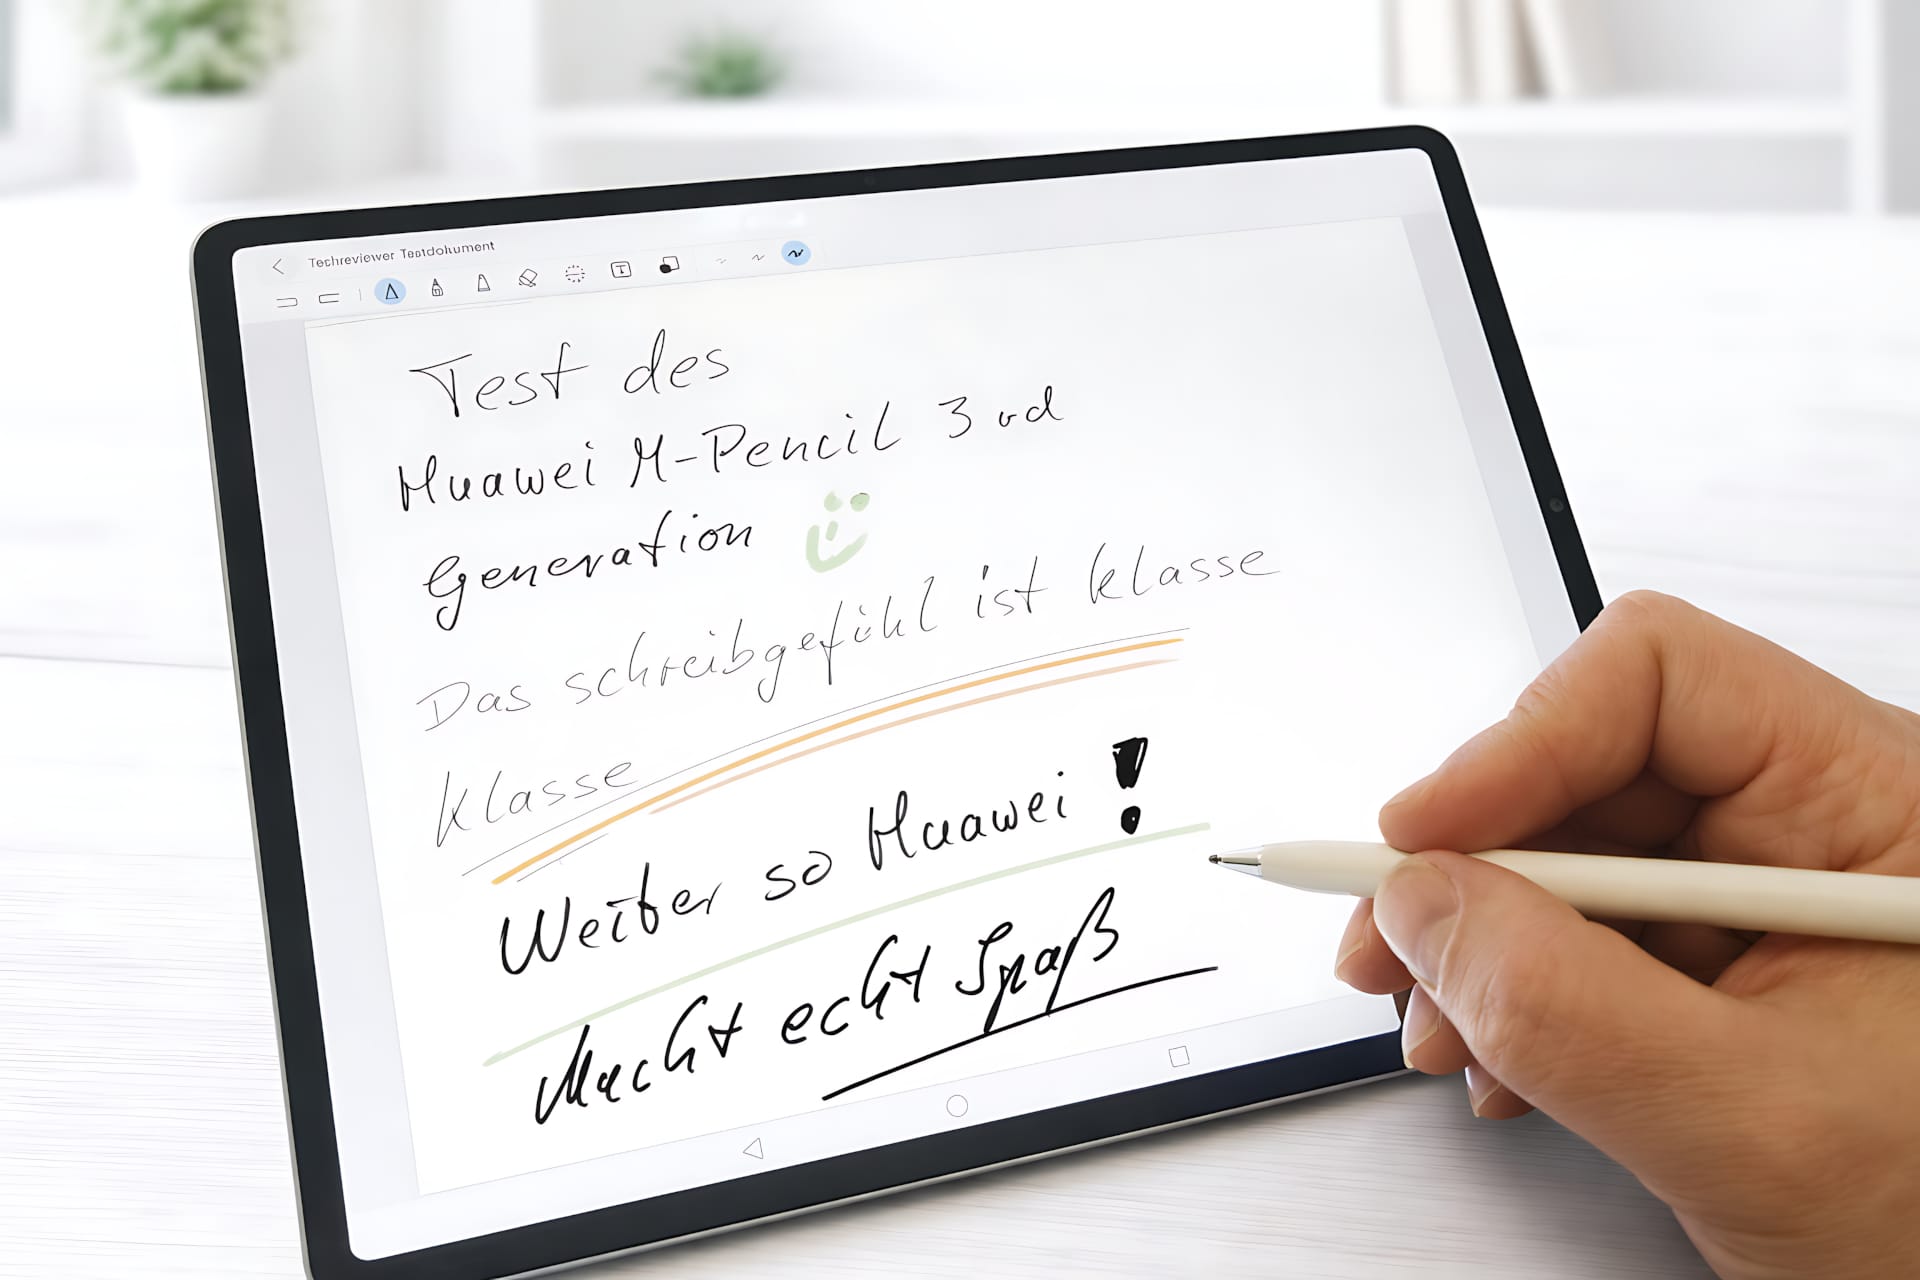 Techreviewer Testdokument
Test des
Huawei M-Pencil 3rd
Generation
Das schreibgefühl ist klasse
klasse
Weiter so Huawei!
Macht echt Spaß